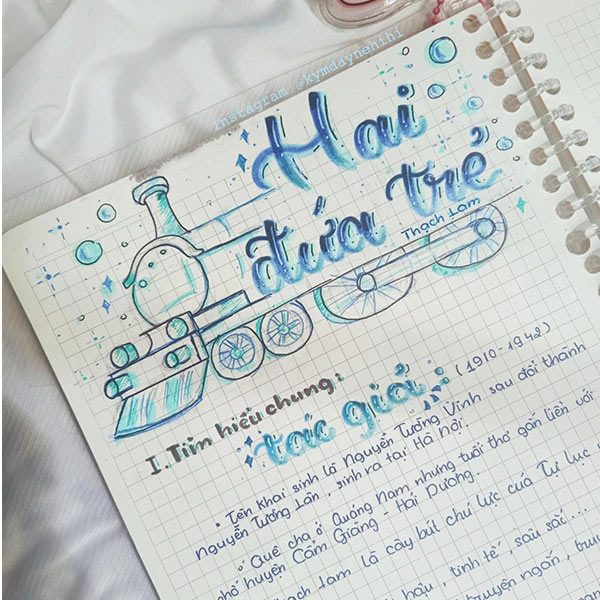 Instagram @kymdaynehihi
Hai
đứa trẻ
Thạch Lam
I. Tìm hiểu chung:
tác giả (1910-1942)
• Tên khai sinh là Nguyễn Tường Vinh sau đổi thành
Nguyễn Tường Lân, sinh ra tại Hà Nội.
• Quê cha ở Quảng Nam nhưng tuổi thơ gắn liền với
phố huyện Cẩm Giàng - Hải Dương.
Thạch Lam là cây bút chủ lực của Tự lực
hậu, tinh tế, sâu sắc...
truyện ngắn,